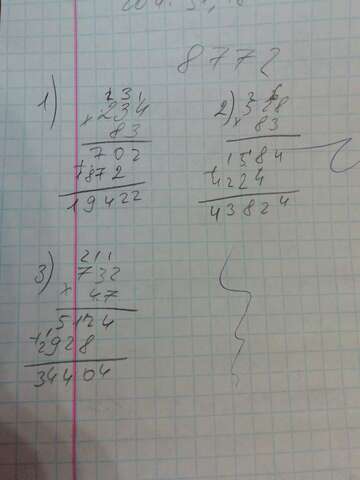 8772
1)
231
234
× 83
702
+1872
19422
2)
2 6
528
× 83
1584
+4224
43824
3)
211
732
× 47
5124
+2928
34404